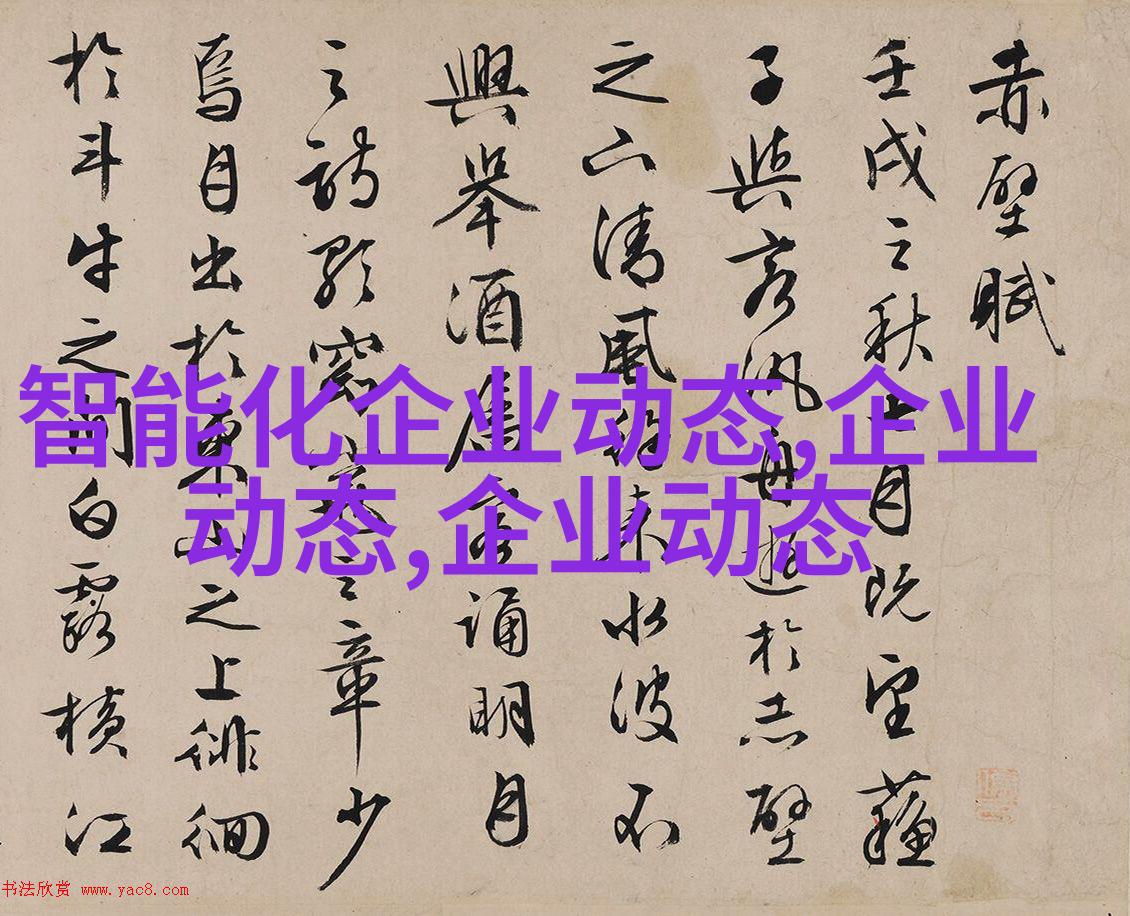 赤壁賦
壬戌之秋七月既望蘓
子與客汎舟遊於赤壁
之下清風徐來水波不
興舉酒屬客誦明月
之詩歌窈窕之章少
焉月出於東山之上徘徊
於斗牛之間白露横江
智能化企业动态,企业
动态,企业动态
书法欣赏 www.yac8.com